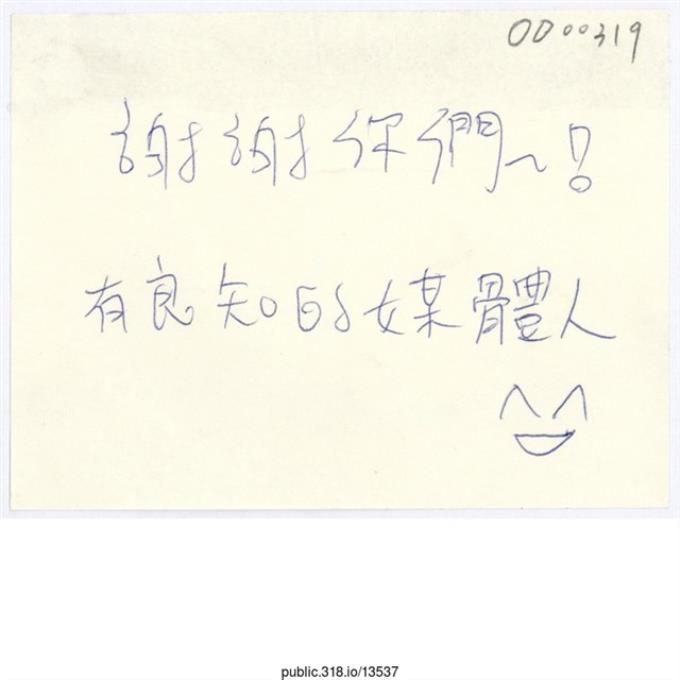 OD00319
謝謝你們～!
有良知的媒體人
public.318.io/13537